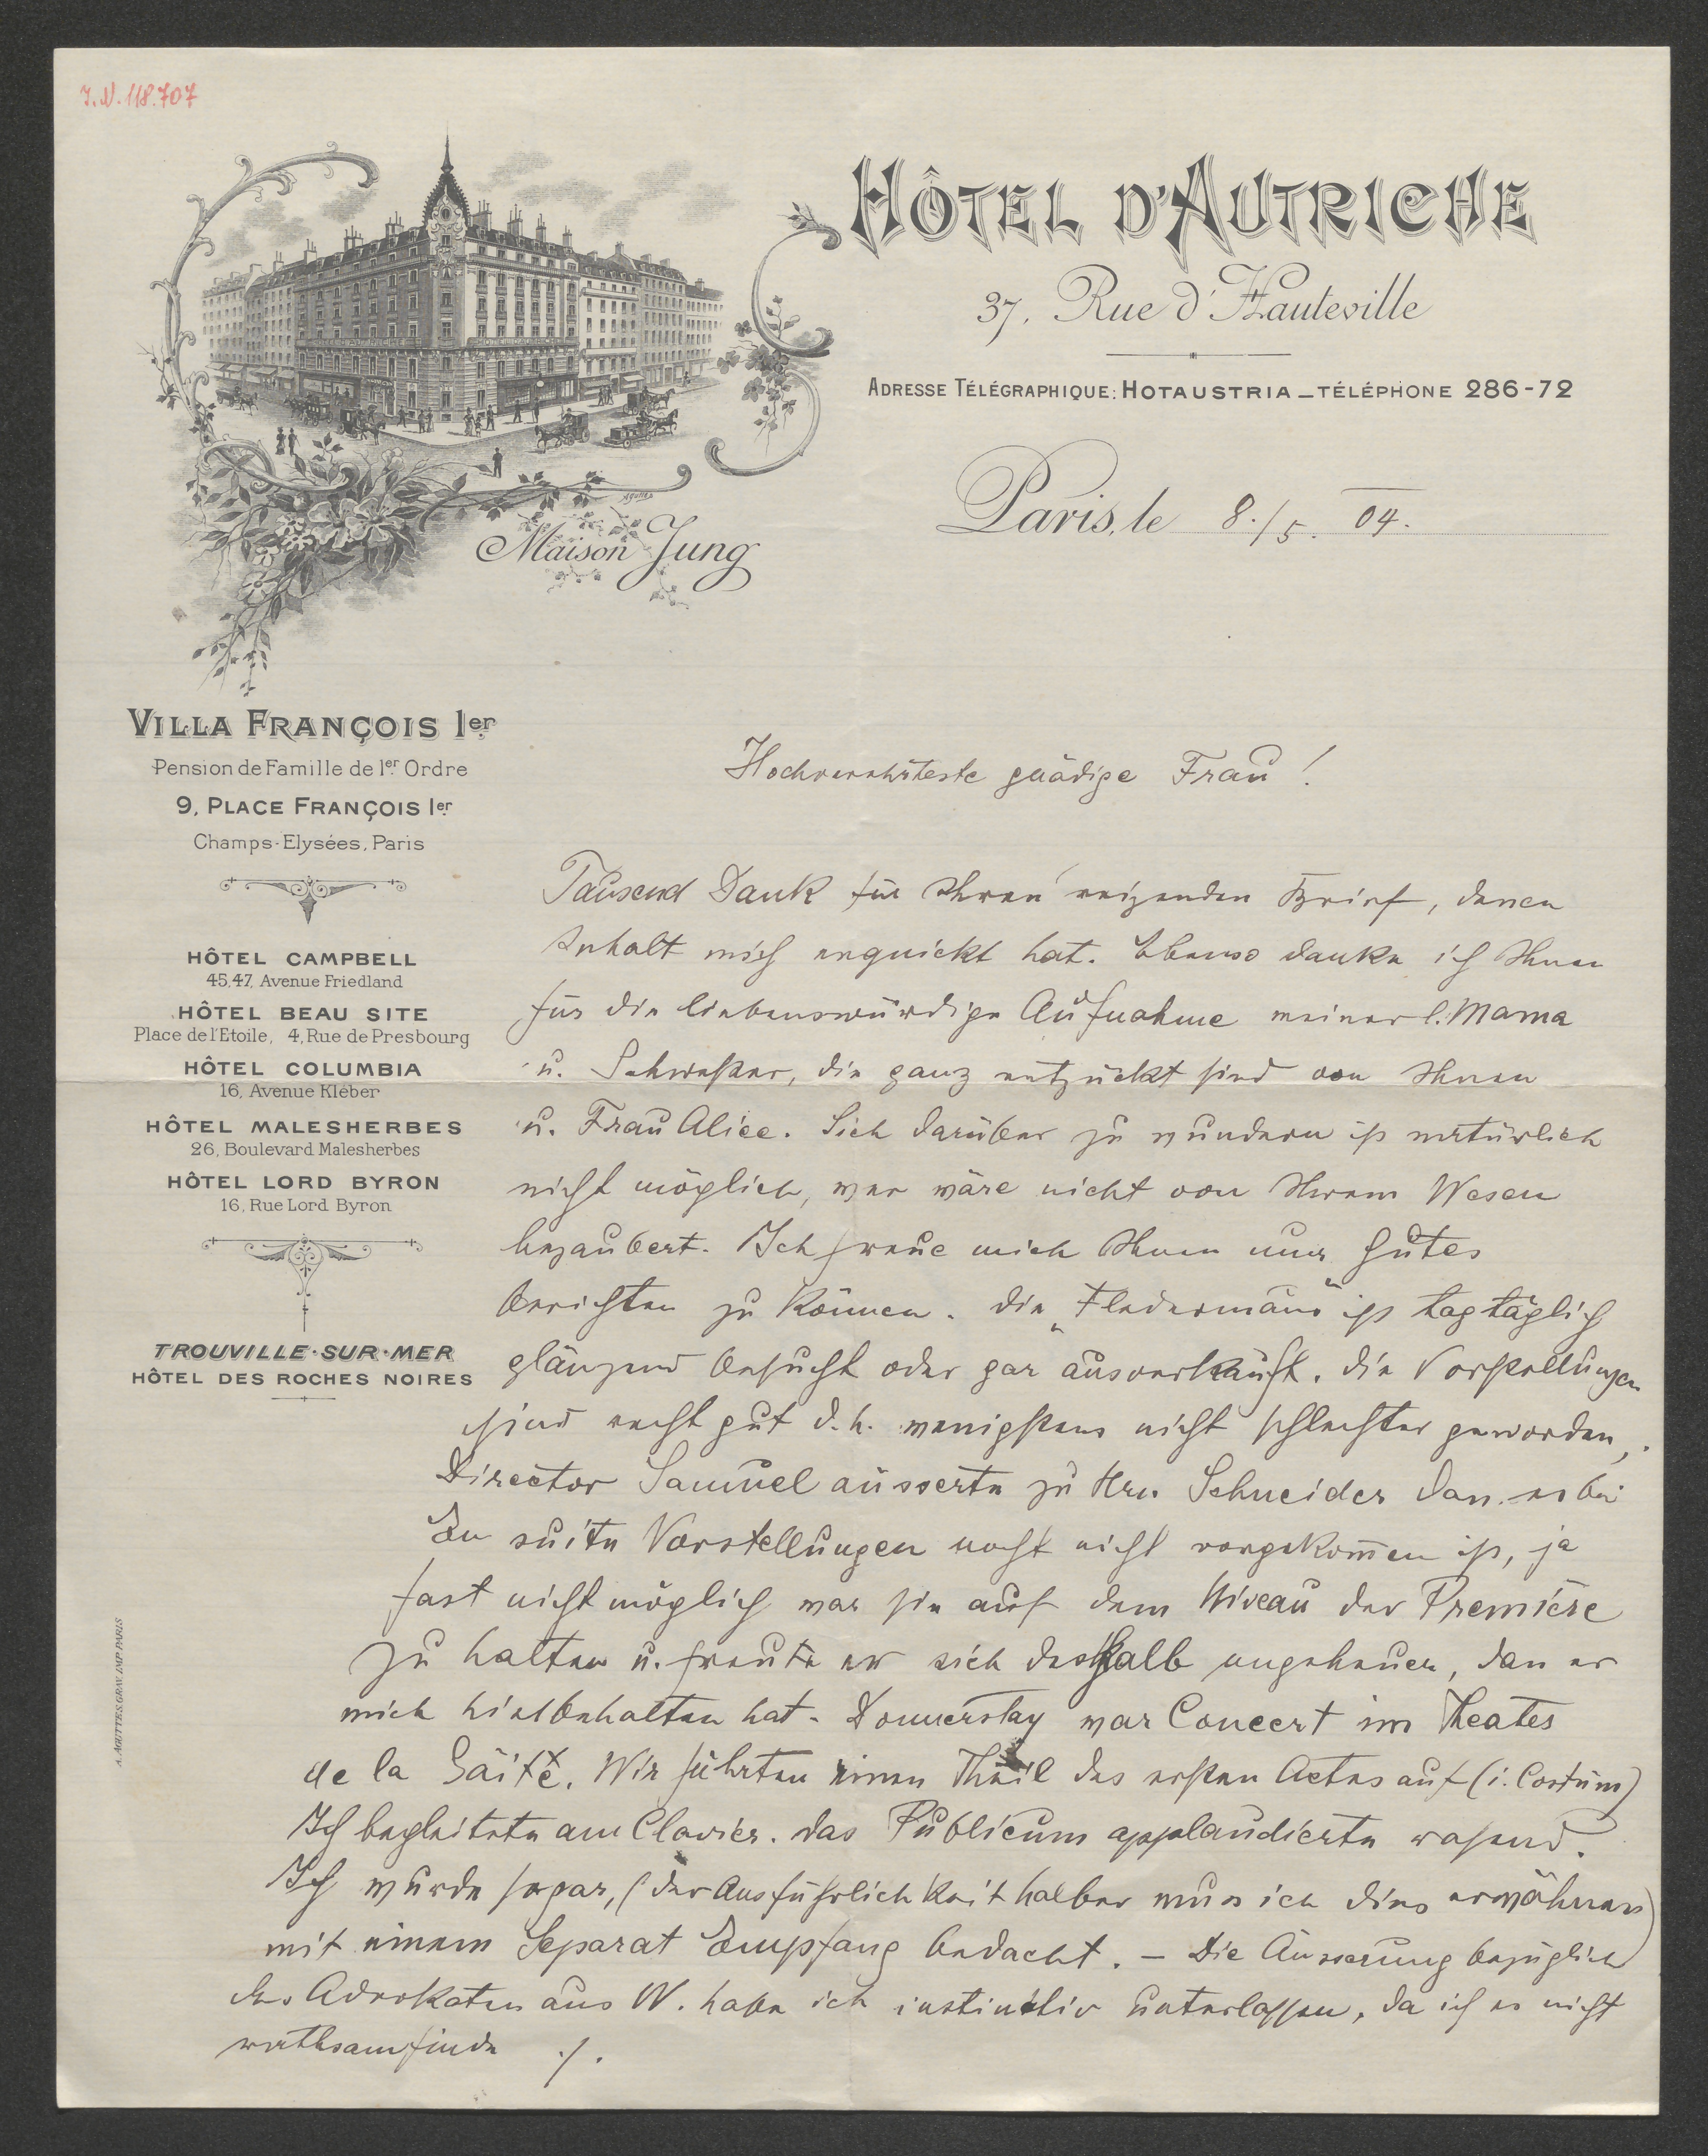 I.N. 118.707
HÔTEL D'AUTRICHE
37, Rue d'Hauteville
ADRESSE TÉLÉGRAPHIQUE: HOTAUSTRIA _ TÉLÉPHONE 286-72
Paris, le 8./5. 04.
Maison Jung
VILLA FRANÇOIS 1er
Pension de Famille de 1er Ordre
9, PLACE FRANÇOIS 1er
Champs-Elysées, Paris
HÔTEL CAMPBELL
45,47, Avenue Friedland
HÔTEL BEAU SITE
Place de l'Etoile, 4, Rue de Presbourg
HÔTEL COLUMBIA
16, Avenue Kléber
HÔTEL MALESHERBES
26, Boulevard Malesherbes
HÔTEL LORD BYRON
16, Rue Lord Byron
TROUVILLE·SUR·MER
HÔTEL DES ROCHES NOIRES
A. AGUTTES. GRAV. IMP. PARIS
Hochverehrteste gnädige Frau!
Tausend Dank für Ihren reizenden Brief, denen
Inhalt mich erquickt hat. Ebenso danke ich Ihnen
für die liebenswürdige Aufnahme meiner l. Mama
u. Schwester, die ganz entzückt sind von Ihnen
u. Frau Alice. Sich darüber zu wundern ist natürlich
nicht möglich, wer wäre nicht von Ihrem Wesen
bezaubert. Ich freue mich Ihnen nur Gutes
berichten zu können. Die „Fledermaus" ist tagtäglich
glänzend besucht oder gar ausverkauft. Die Vorstellungen
sind recht gut d. h. wenigstens nicht schlechter geworden,
Director Samuel äusserte zu Hrn. Schneider dass es bei
En suite Vorstellungen noch nicht vorgekommen ist, ja
fast nicht möglich war sie auf dem Niveau der Premiére
zu halten u. freute er sich deshalb ungeheuer, dass er
mich hierbehalten hat. Donnerstag war Concert im Theater
de la Gaité. Wir führten einen Theil des ersten Actes auf (i. Costüm)
Ich begleitete am Clavier. Das Publicum applaudierte rasend.
Ich wurde sogar, (der Ausführlichkeit halber muss ich dies erwähnen)
mit einem Separat Empfang bedacht. – Die Äusserung bezüglich
des Advokaten aus W. habe ich instinctiv unterlassen, da ich es nicht
rathsam finde ./.